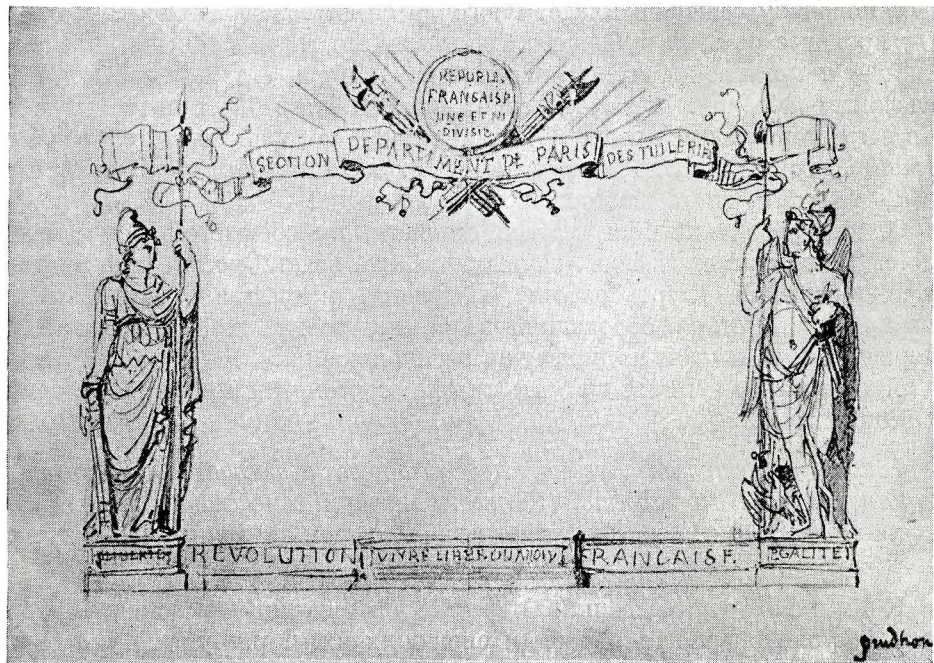 REPUPLA.
FRANCAISP
UNE ET NI
DIVISIZ
SECTION DEPARTIMENT DE PARIS DES TUILERIE
LIBERTE REVOLUTION VIVRE LIBER OU FRANCAISE EGALITE
prudhon